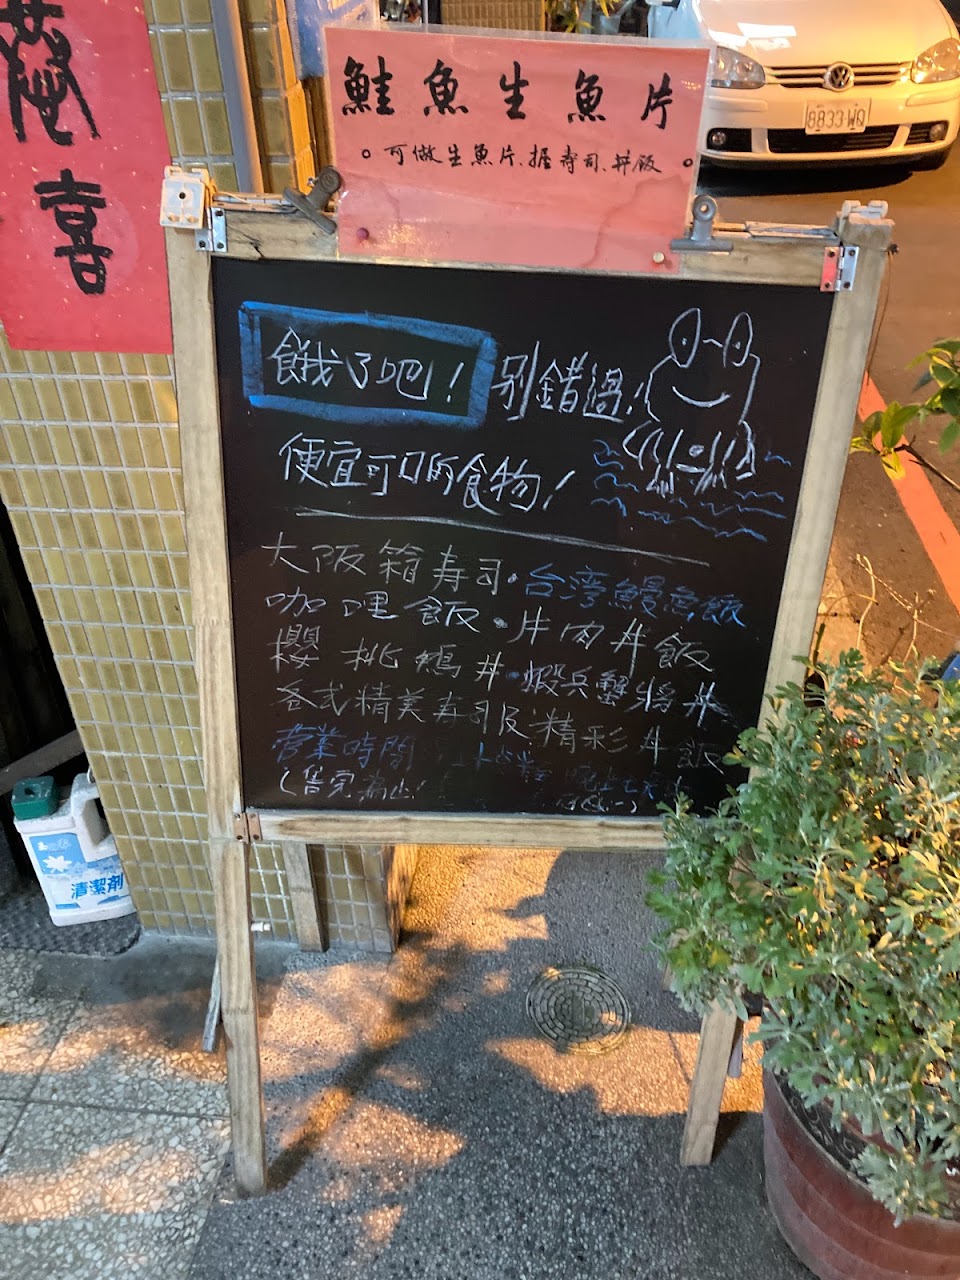 鮭魚生魚片
。可做生魚片、握壽司、丼飯。
喜
8833 WQ
餓了吧！別錯過！
便宜可口的食物！
大阪箱壽司·台湾鰻魚飯
咖哩飯·牛肉丼飯
櫻桃鴨丼·蝦兵蟹將丼
各式精美寿司及精彩丼飯
营業時間
(售完為止!
清潔劑